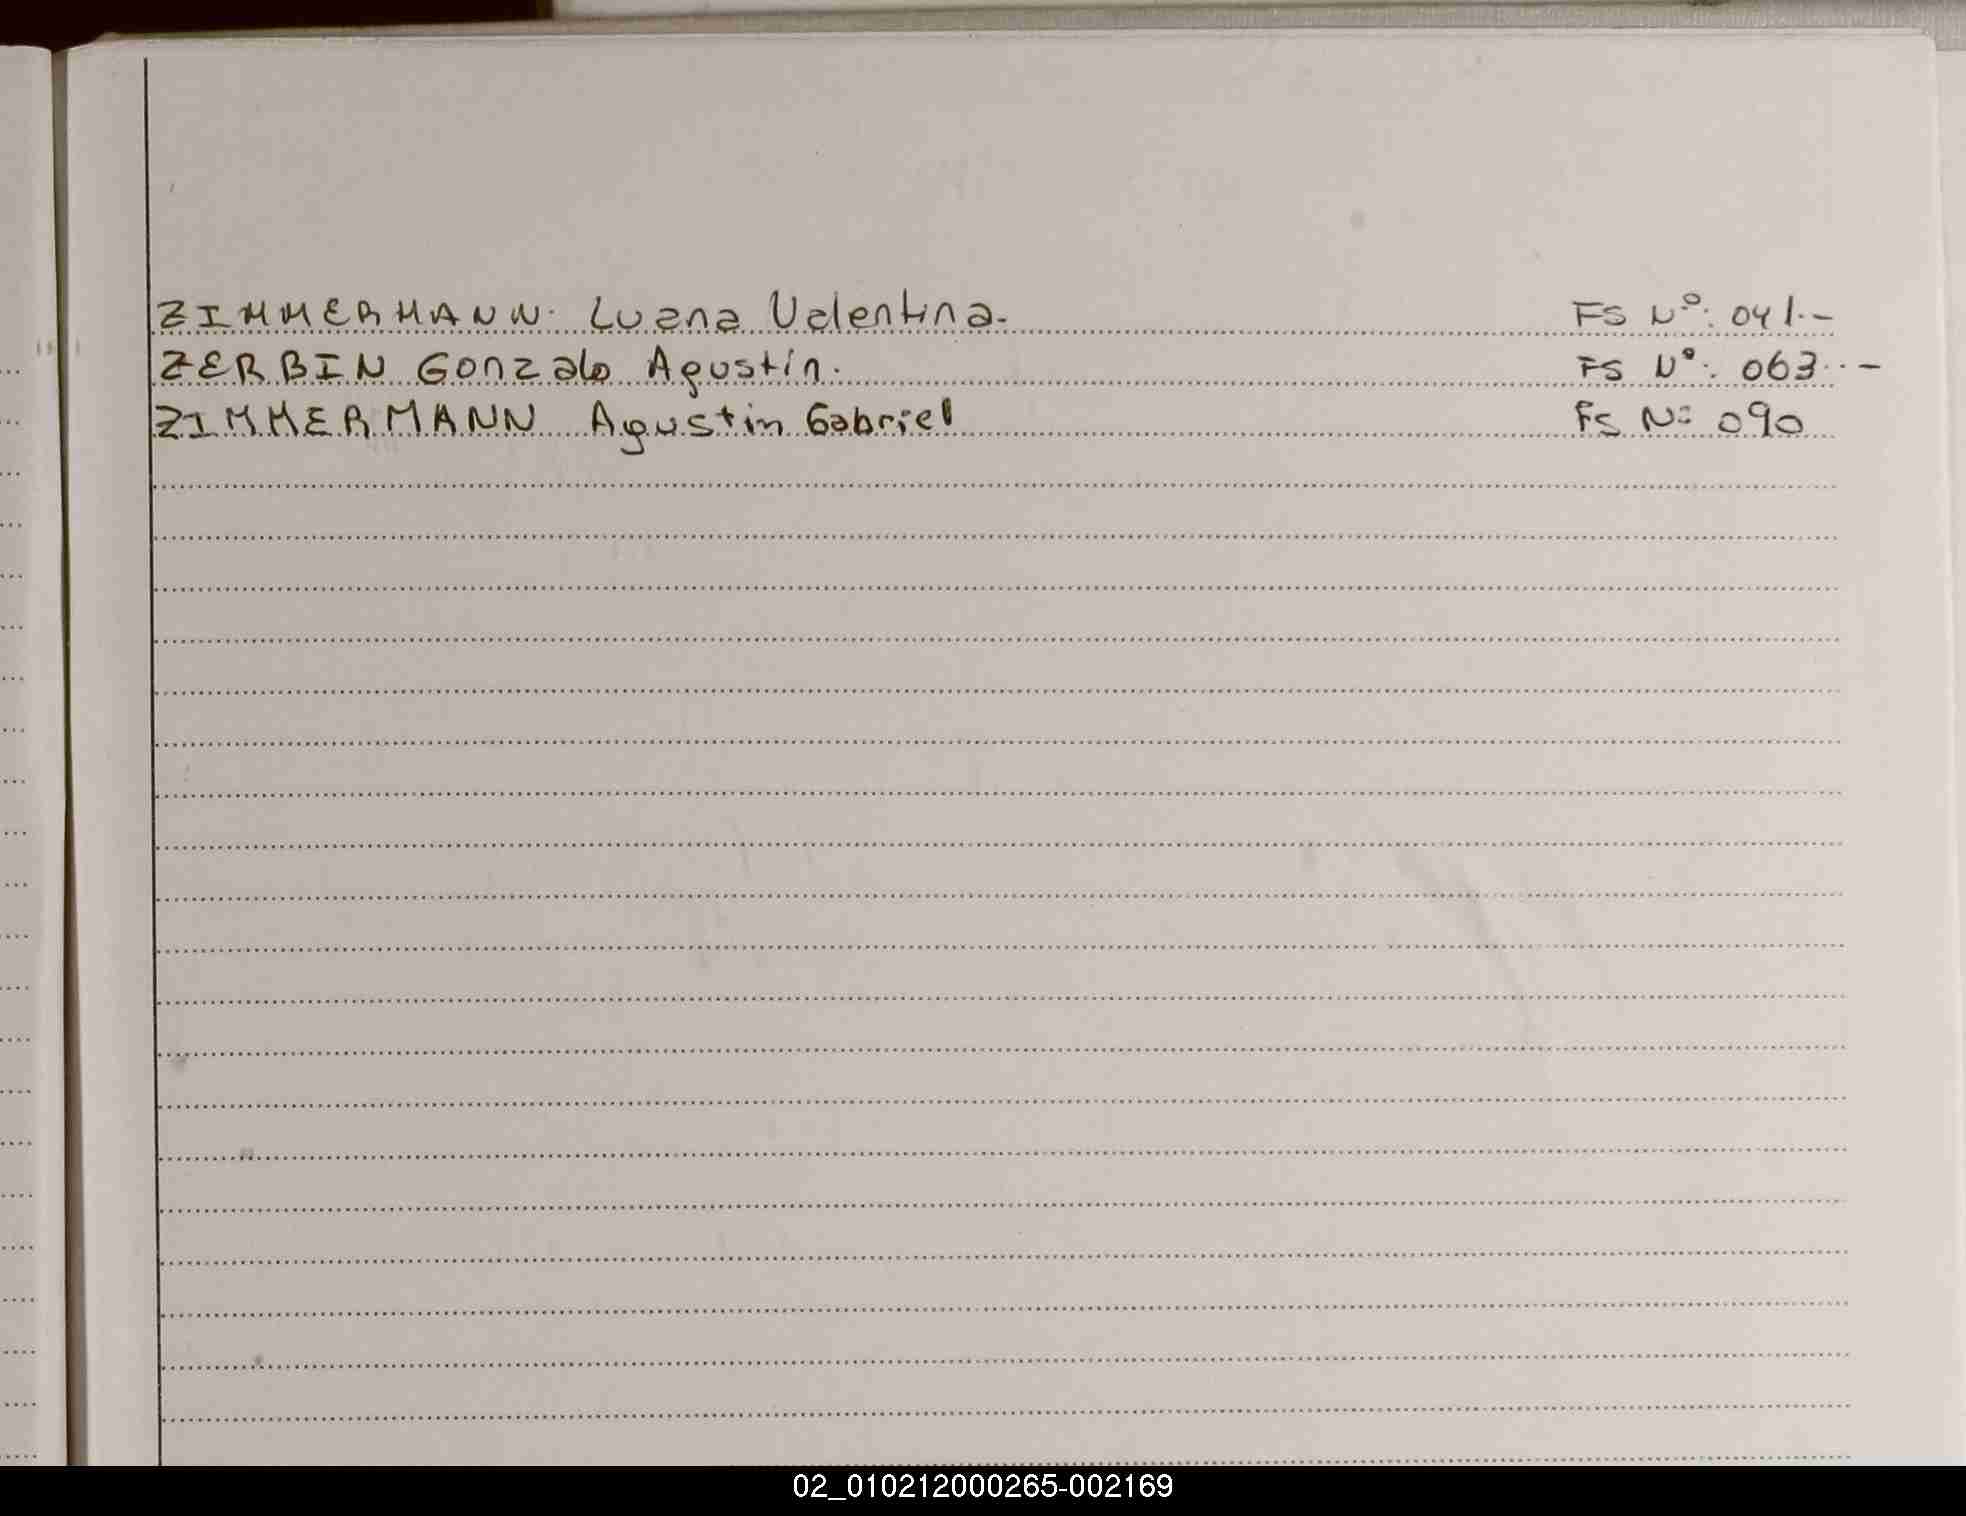 ZIMMERMANN. Luana Valentina.- FS Nº: 041.-
ZERBIN Gonzalo Agustín. FS Nº: 063.-
ZIMMERMANN Agustin Gabriel FS Nº 090
02_010212000265-002169